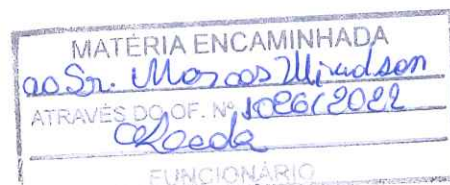 MATÉRIA ENCAMINHADA
ao Sr. Marcos
ATRAVÉS DO OF. Nº 1086/2022
FUNCIONÁRIO